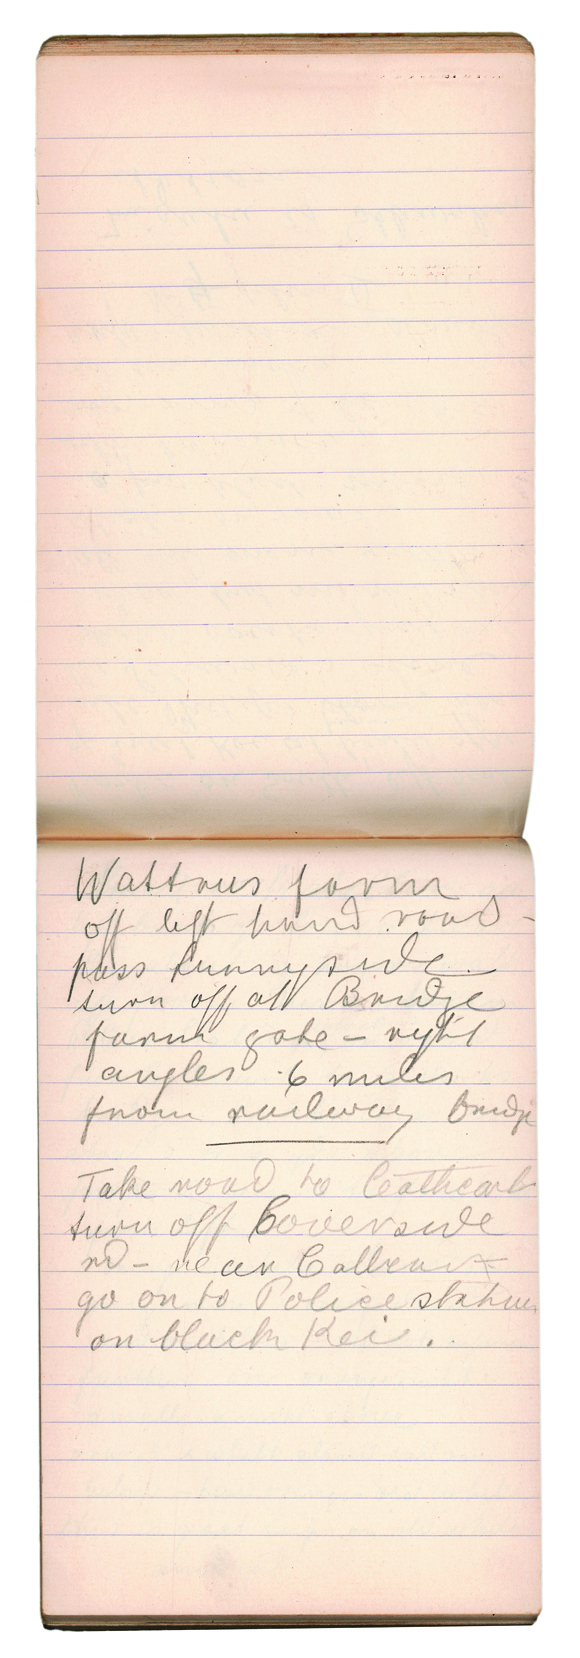 Wattrus farm
off left hand road -
pass Sunnyside
turn off at Bridge
farm gate - right
angles 6 miles
from railway Bridge
Take road to Cathcart
turn off
rd - near Cathcart
go on to Police station
on black Kei.